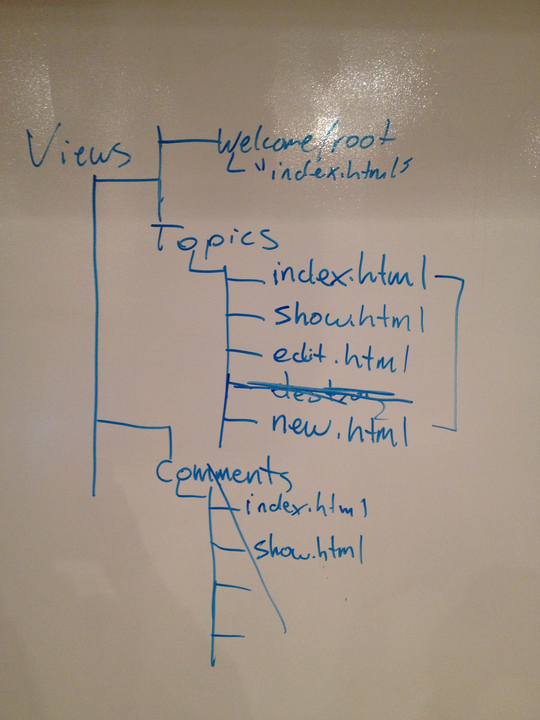 Views
Welcome/root
"index.html"
Topics
index.html
show.html
edit.html
destroy
new.html
Comments
index.html
show.html